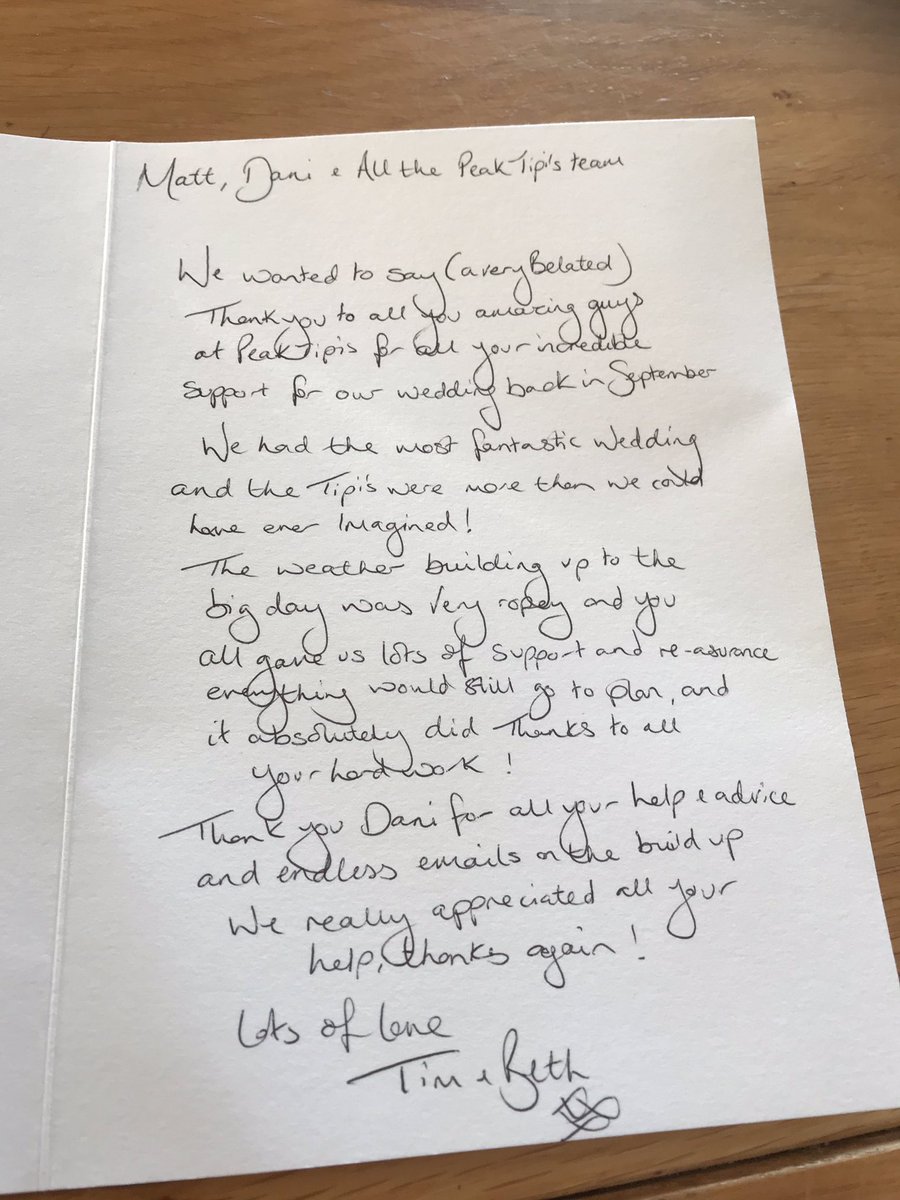 Matt, Dani & All the Peak Tipi's team
We wanted to say (a very Belated)
Thank you to all you amazing guys
at Peak Tipis for all your incredible
support for our wedding back in September
We had the most fantastic wedding
and the Tipi's were more then we could
have ever Imagined!
The weather building up to the
big day was very ropey and you
all gave us lots of support and re-asurance
everything would still go to plan, and
it absolutely did Thanks to all
your hard work!
Thank you Dani for all your help & advice
and endless emails on the build up
We really appreciated all your
help, thanks again!
Lots of love
Tim & Beth